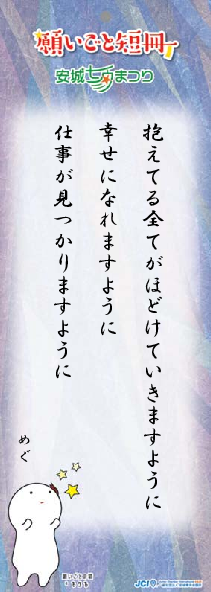 願いごと短冊
安城七夕まつり
抱えてる全てがほどけていきますように
幸せになれますように
仕事が見つかりますように
めぐ
願いごと短冊
JCI